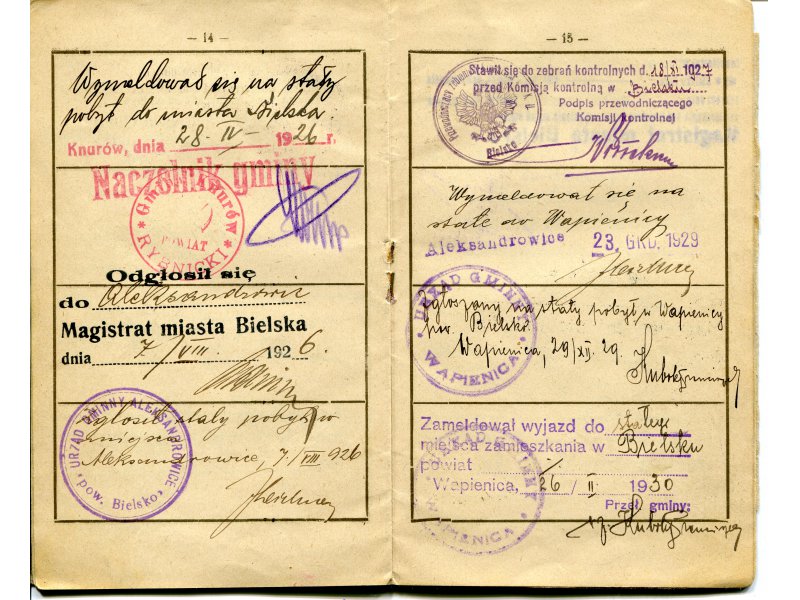 — 14 —
Wymeldował się na stały
pobyt do miasta Bielska.
Knurów, dnia 28 IV – 1926 r.
Naczelnik gminy
Gmina Knurów
POWIAT
RYBNICKI
Odgłosił się
do Aleksandrowic
Magistrat miasta Bielska
dnia 7/VIII. 1926.
URZĄD GMINNY ALEKSANDROWICE
pow. Bielsko
zgłosił stały pobyt w
miejscu
Aleksandrowice, 7/VIII 926
— 15 —
Stawił się do zebrań kontrolnych d. 18/XI 1927
przed Komisją kontrolną w Bielsku
Podpis przewodniczącego
Komisji kontrolnej
Bielsko
Wymeldował się na
stałe do Wapienicy
Aleksandrowice 23. GRD. 1929
URZĄD GMINNY
WAPIENICA
zgłoszony na stały pobyt w Wapienicy
pow. Bielsko.
Wapienica, 29/XII. 29.
Zameldował wyjazd do stałego
miejsca zamieszkania w Bielsku
powiat
Wapienica, 26 / II 1930
Przeł. gminy:
URZĄD GMINNY
WAPIENICA